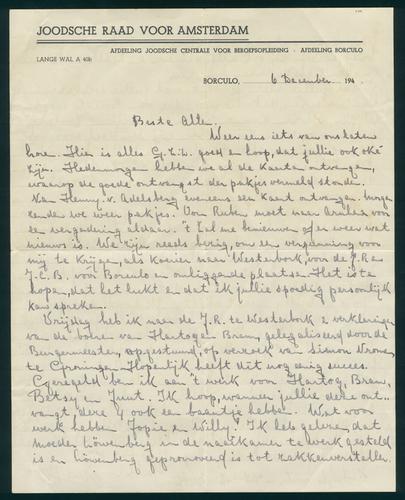 JOODSCHE RAAD VOOR AMSTERDAM
AFDEELING JOODSCHE CENTRALE VOOR BEROEPSOPLEIDING - AFDEELING BORCULO
LANGE WAL A 40b
BORCULO, 6 December 194
Beste Allen.
Weer eens iets van ons laten
horen. Hier is alles G.z.D. goed en hoop, dat jullie ook oké
zijn. Hedenmorgen hebben we al de kaarten ontvangen,
waarop de goede ontvangst der pakjes vermeld stonden.
Van Henny v. Adelsberg eveneens een kaart ontvangen. Morgen
zenden we weer pakjes. Don Ruben moet naar Arnhem voor
een vergadering aldaar. 't Zal me benieuwen of er weer wat
nieuws is. We zijn reeds bezig, om een vergunning voor
mij te krijgen, als koerier naar Westerbork, voor de J.R. en
J.C.B. voor Borculo en omliggende plaatsen. Het is te
hopen, dat het lukt en dat ik jullie spoedig persoonlijk
kan spreken.
Vrijdag heb ik naar de J.R. te Westerbork 2 verklaringen
van de boeren van Hartog en Bram, gelegaliseerd door de
Burgemeester, opgestuurd, op verzoek van Simon Vrome
te Groningen. Hopelijk heeft dit nog enig succes.
Geregeld ben ik aan 't werk voor Hartog, Bram,
Betsy en Juut. Ik hoop, wanneer jullie deze ont-
vangt, deze 4 ook een baantje hebben. Wat voor
werk hebben Jopie en Willy? Ik heb gelezen, dat
moeder Löwenberg in de naaikamer te werk gesteld
is en Löwenberg gepromoveerd is tot zakkenversteller.